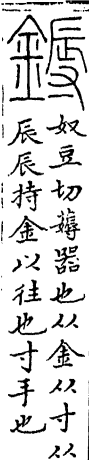 鎒
奴豆切薅器也从金从寸从
辰辰持金以往也寸手也